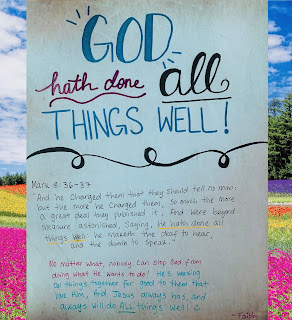 GOD
hath done all
THINGS WELL!
Mark 7:36-37
"And he charged them that they should tell no man:
but the more he charged them, so much the more
a great deal they published it; And were beyond
measure astonished, saying, He hath done all
things well: he maketh the deaf to hear,
and the dumb to speak."
No matter what, nobody can stop God from
doing what He wants to do! He's working
all things together for good to them that
love Him, And Jesus always has, and
always will do ALL things well! :)
- Faith